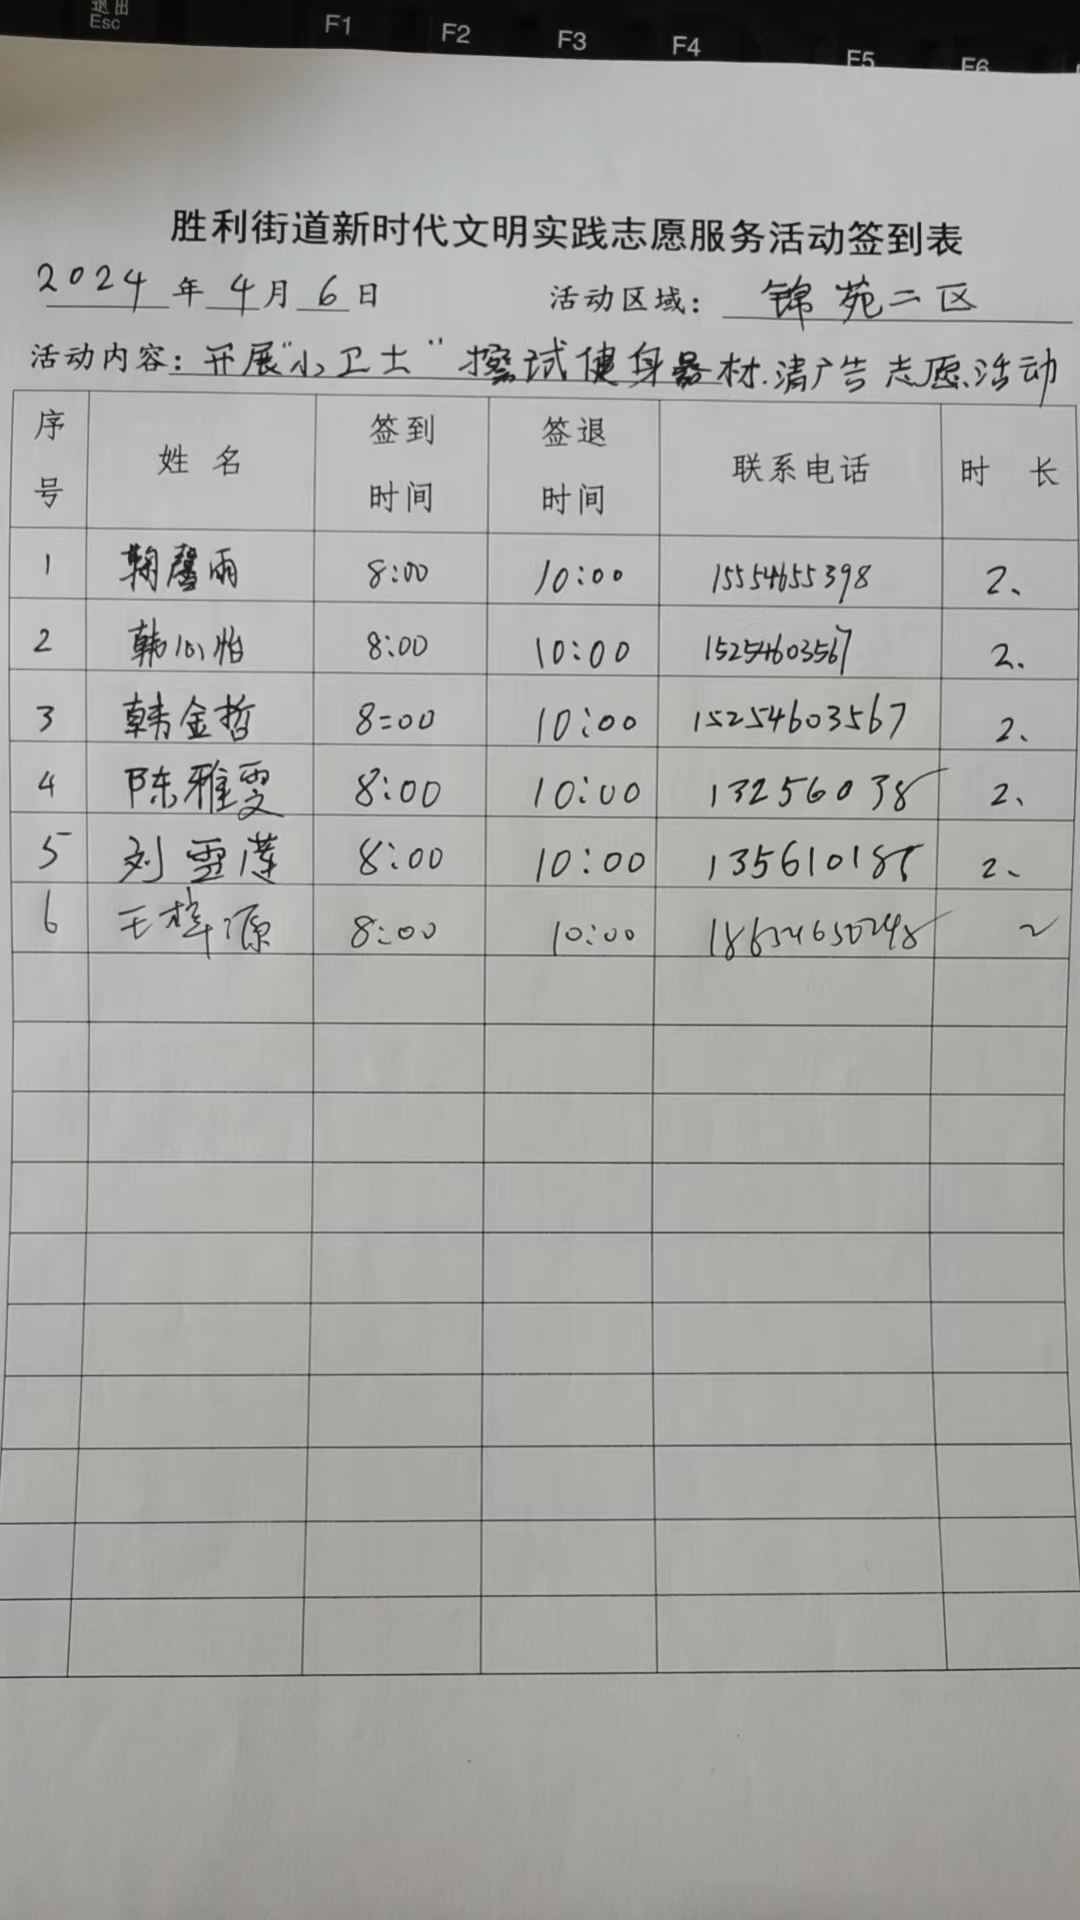 退出
Esc F1 F2 F3 F4 F5 F6
胜利街道新时代文明实践志愿服务活动签到表
2024年4月6日 活动区域：锦苑二区
活动内容：开展“小卫士”擦试健身器材.清广告志愿活动
序号 姓名 签到时间 签退时间 联系电话 时长
1 鞠馨雨 8:00 10:00 15554655398 2、
2 韩心怡 8:00 10:00 15254603567 2、
3 韩金哲 8=00 10:00 15254603567 2、
4 陈雅雯 8:00 10:00 13256038 2、
5 刘雪莲 8:00 10:00 13561018 2、
6 王梓源 8:00 10:00 18654650248 2